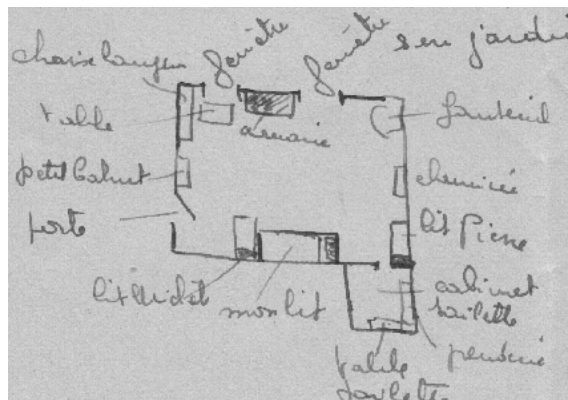 chaise longue
fenêtre
fenêtre
sur jardin
table
armoire
fauteuil
petit bahut
cheminée
porte
lit Pierre
lit Michel
mon lit
cabinet
toilette
penderie
table
toilette